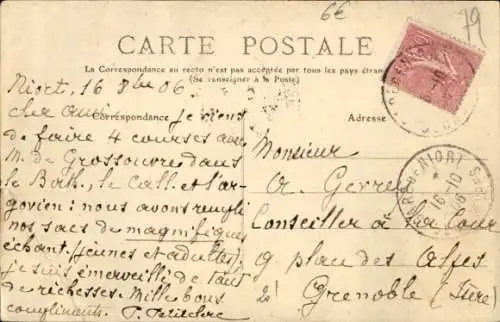 6€
79
CARTE POSTALE
La Correspondance au recto n'est pas acceptée par tous les pays étran
(Se renseigner à la Poste)
Niort, 16 8bre 06
Correspondance
cher ami je viens
de faire 4 courses avec
M. de Grossouvre dans
le Bath., le Call. et l'ar-
govien : nous avons rempli
nos sacs de magnifiques
échant. (jeunes et adultes)
je suis émerveillé de tant
de richesses. Mille bons
compliments. P. Petitclerc
Adresse
Monsieur
A. Gevrey
Conseiller à la Cour
9. place des Alpes
à Grenoble (Isère)
NIORT
16-10